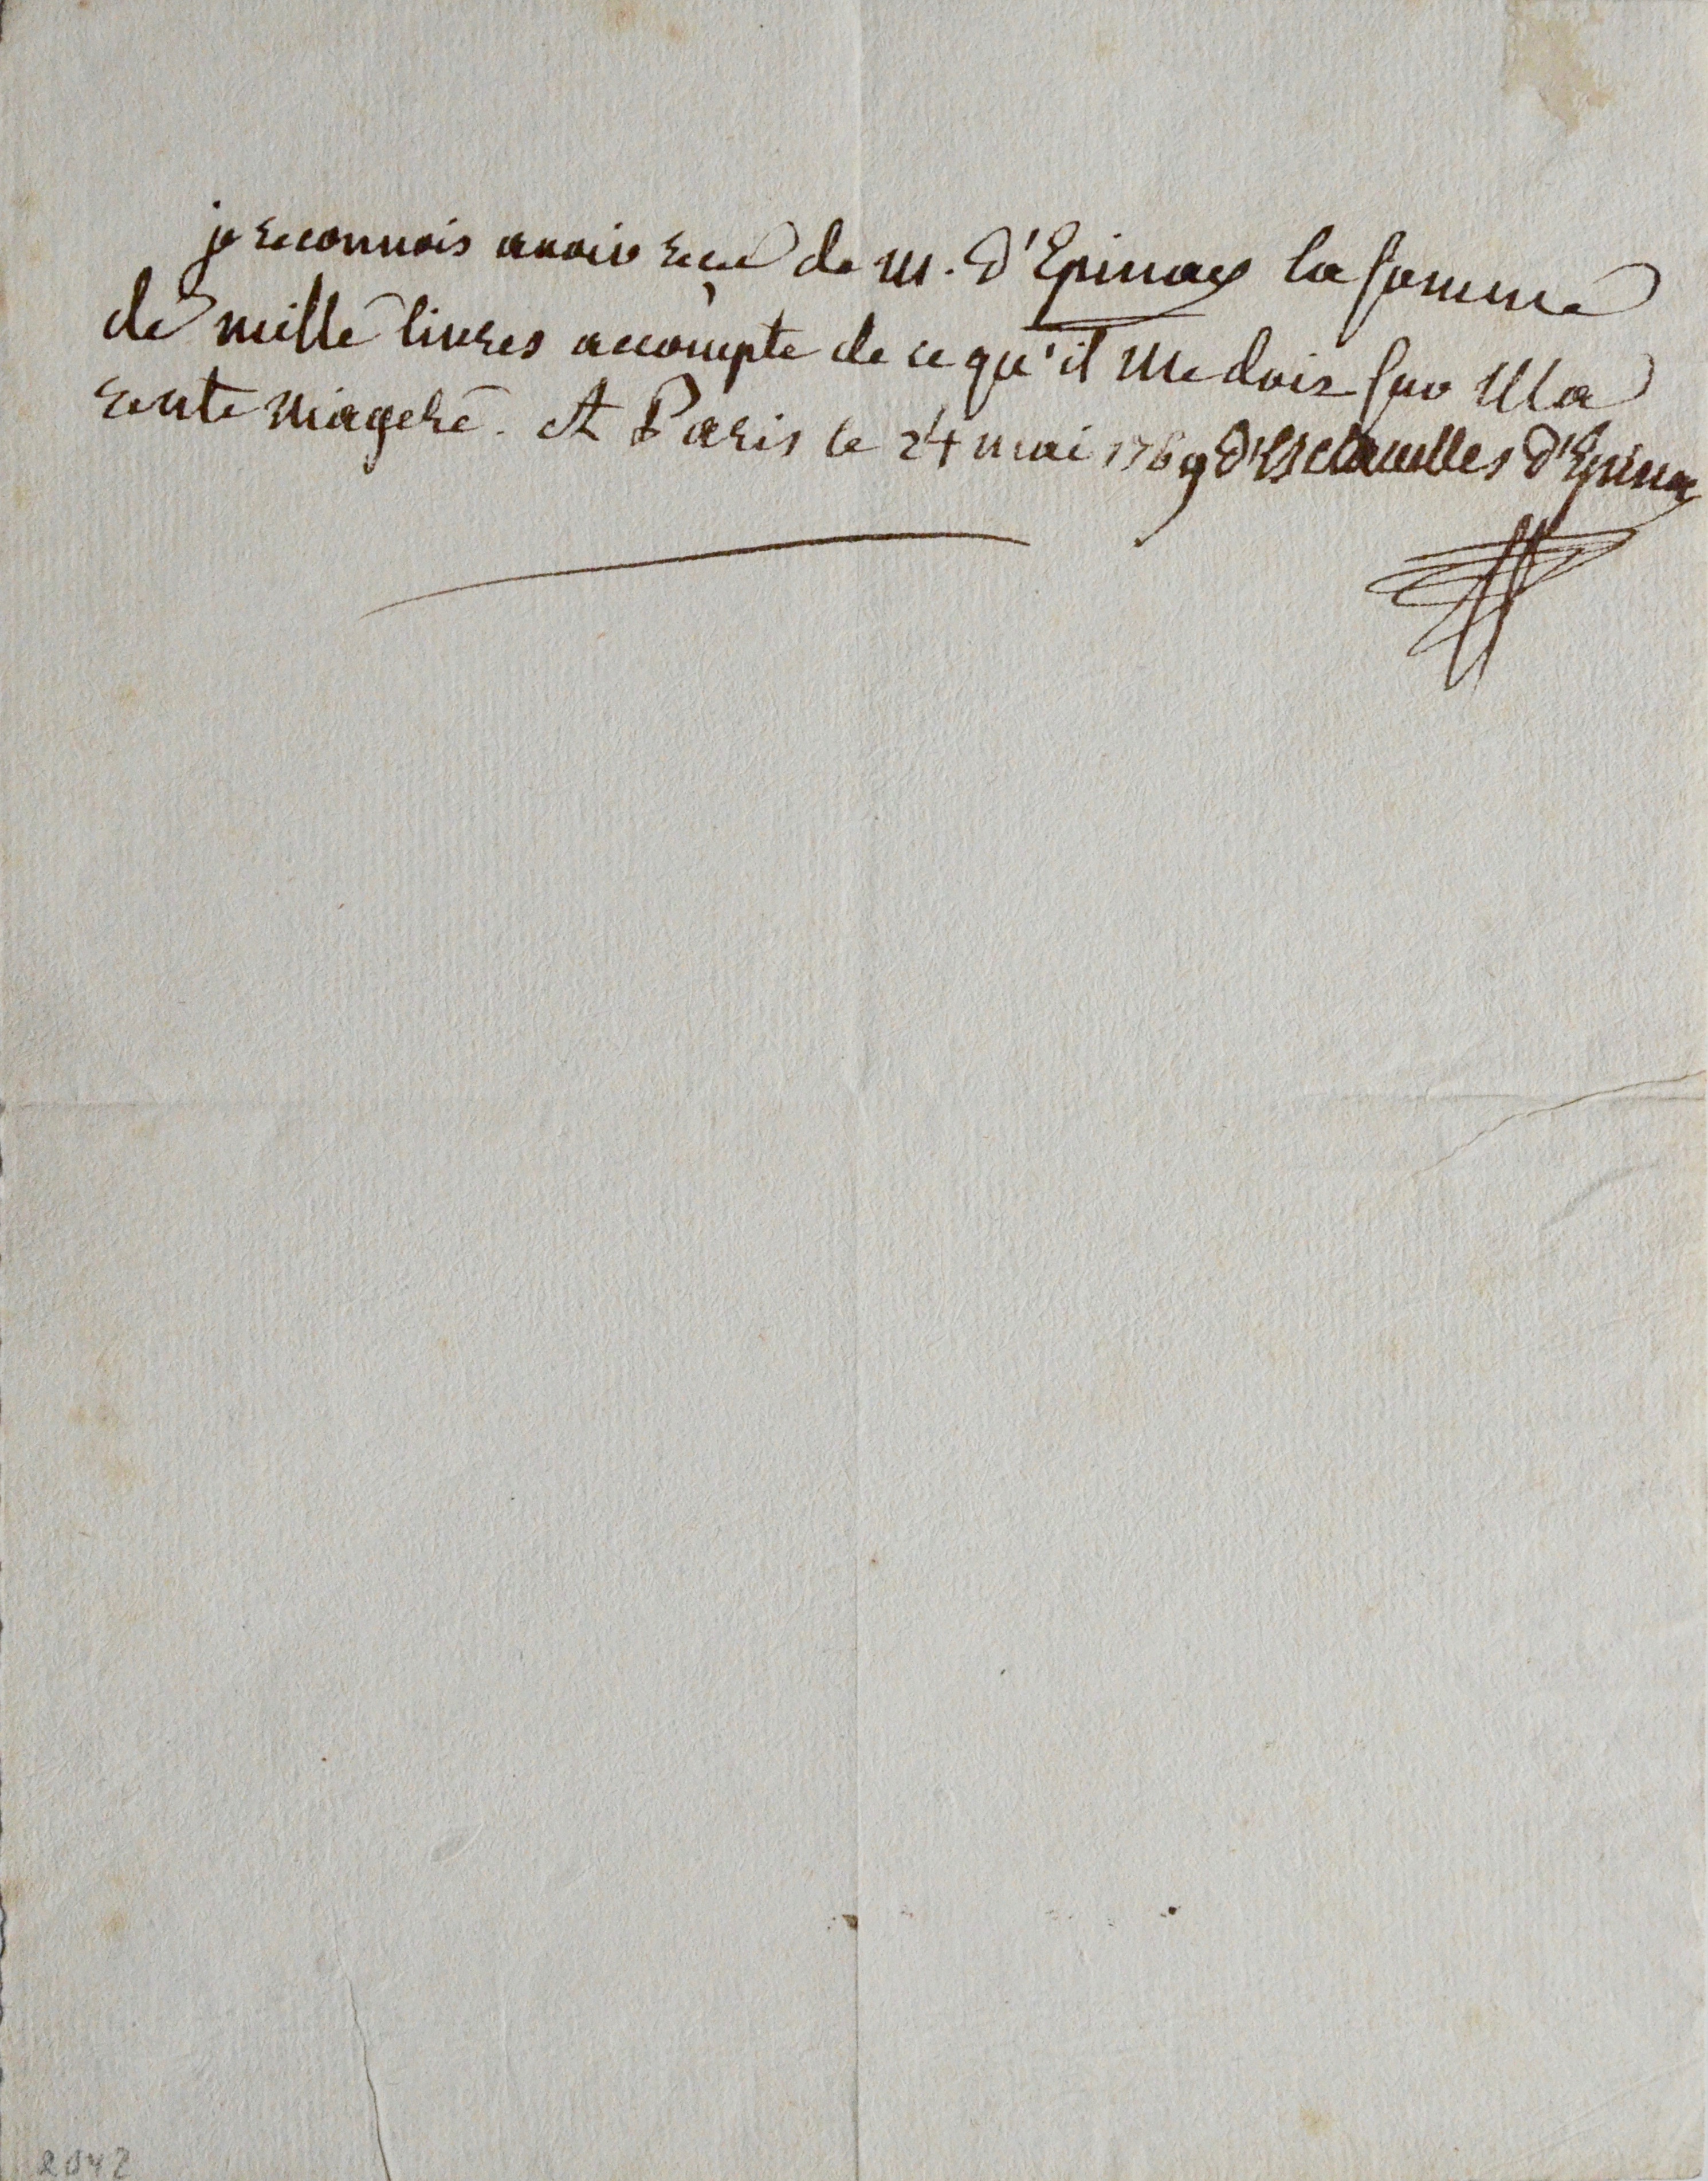 je reconnois avoir recu de M. d'Epinay la somme
de mille livres accompte de ce qu'il me dois sur Ma
rente viagere. A Paris le 24 mai 1769 d'Esclavelles d'Epinay
2042